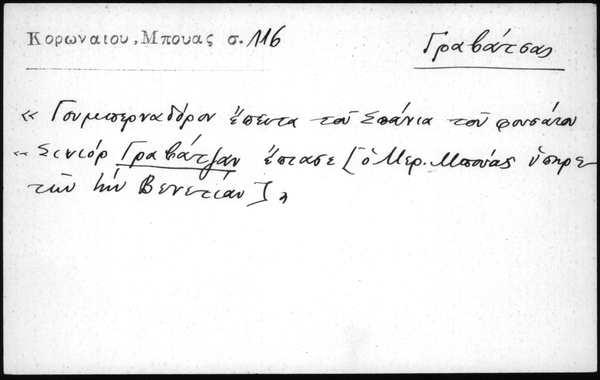 Κορωναιου, Μπουας σ. 116
Γραβάτσας
« Γουμπερναδόρον ἔπειτα τοῦ Σπάνια τοῦ φουσάτου
« Σινιόρ Γραβάτζαν ἔπιασε [ὁ Μερ. Μπούας ὑπηρε
τῶν τήν Βενετίαν]»